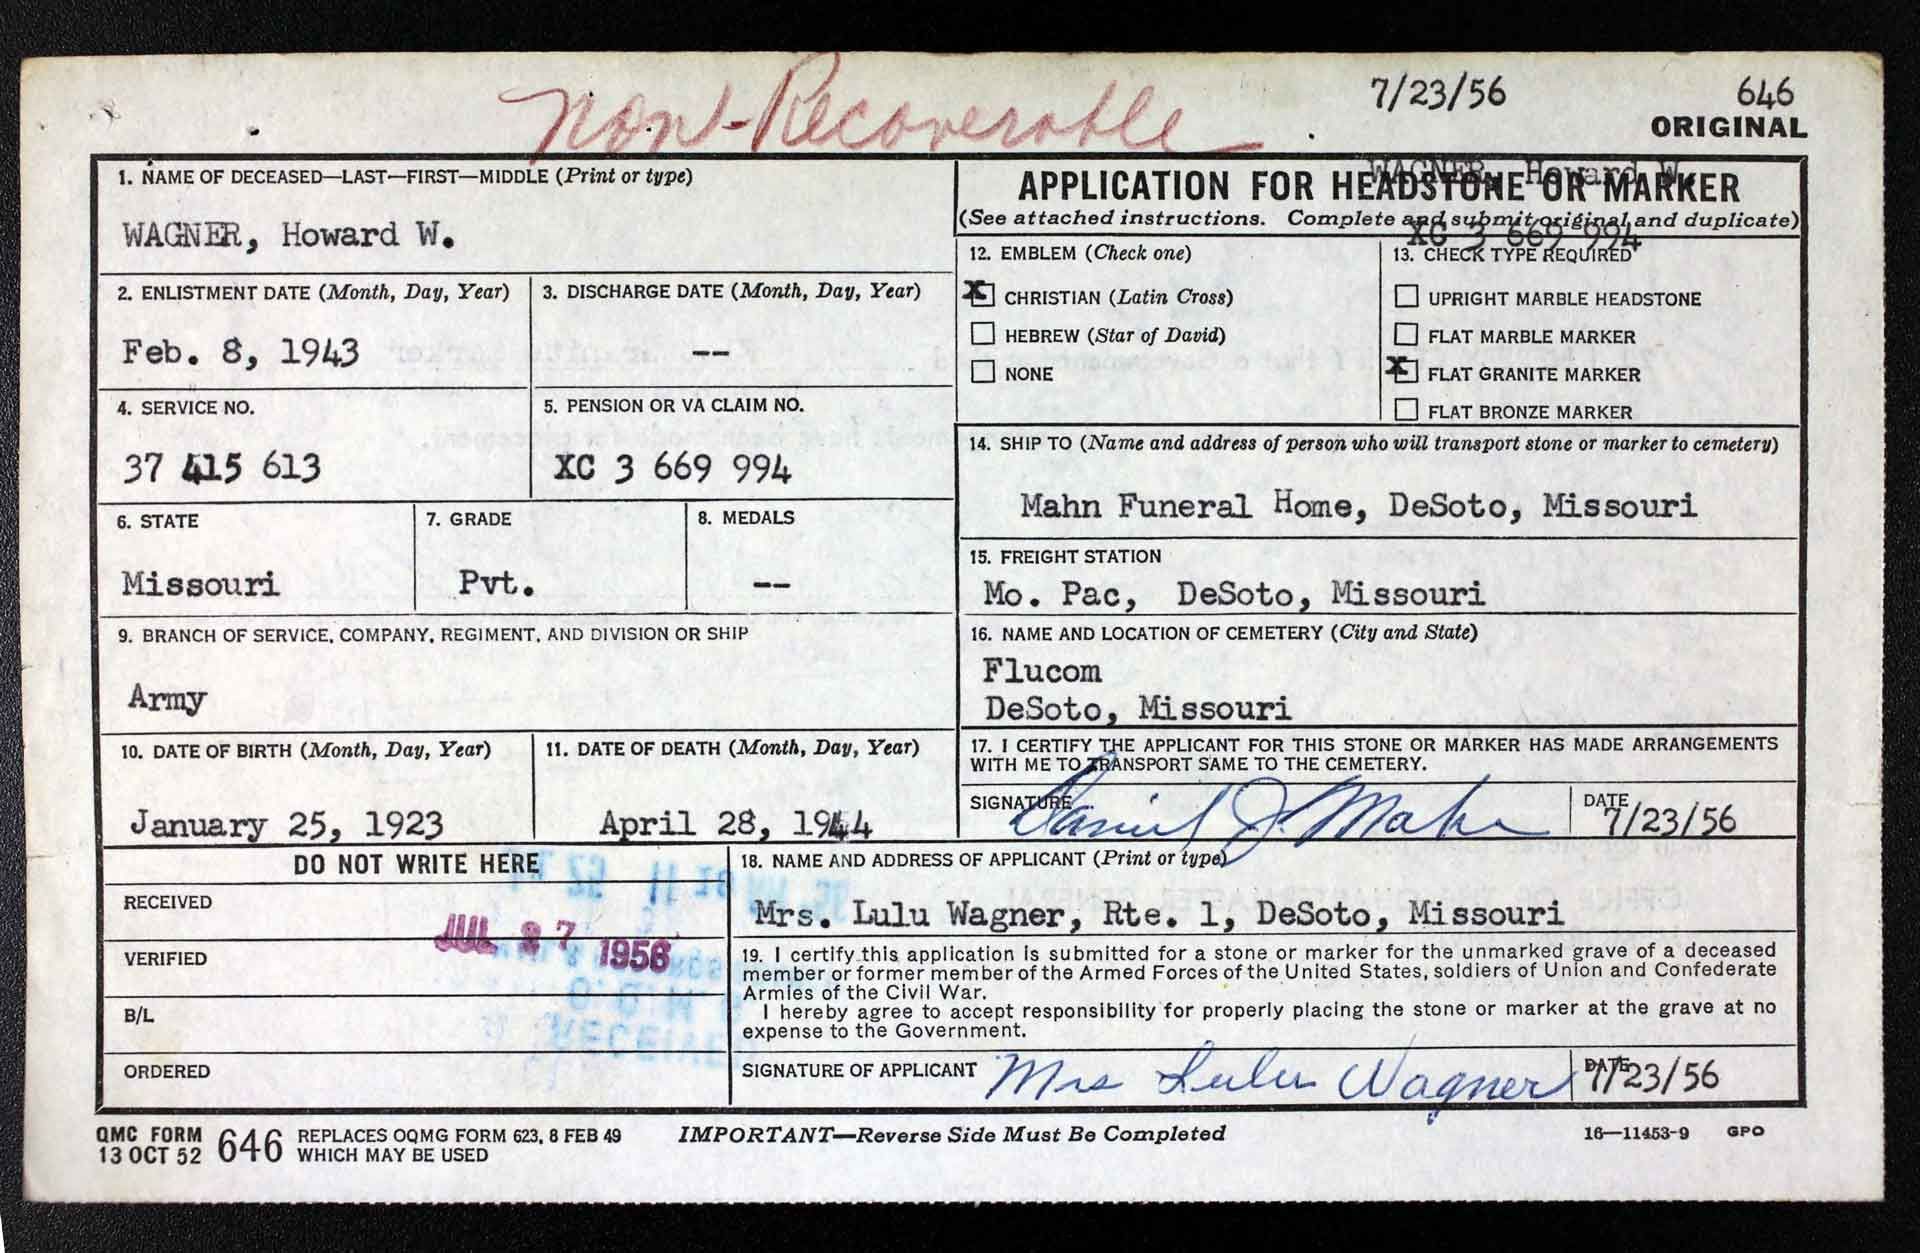 Non-Recoverable
7/23/56
646
ORIGINAL
1. NAME OF DECEASED—LAST—FIRST—MIDDLE (Print or type)
WAGNER, Howard W.
2. ENLISTMENT DATE (Month, Day, Year)
Feb. 8, 1943
3. DISCHARGE DATE (Month, Day, Year)
--
4. SERVICE NO.
37 415 613
5. PENSION OR VA CLAIM NO.
XC 3 669 994
6. STATE
Missouri
7. GRADE
Pvt.
8. MEDALS
--
9. BRANCH OF SERVICE, COMPANY, REGIMENT, AND DIVISION OR SHIP
Army
10. DATE OF BIRTH (Month, Day, Year)
January 25, 1923
11. DATE OF DEATH (Month, Day, Year)
April 28, 1944
WAGNER, Howard W.
APPLICATION FOR HEADSTONE OR MARKER
(See attached instructions. Complete and submit original and duplicate)
XC 3 669 994
12. EMBLEM (Check one)
X CHRISTIAN (Latin Cross)
HEBREW (Star of David)
NONE
13. CHECK TYPE REQUIRED
UPRIGHT MARBLE HEADSTONE
FLAT MARBLE MARKER
X FLAT GRANITE MARKER
FLAT BRONZE MARKER
14. SHIP TO (Name and address of person who will transport stone or marker to cemetery)
Mahn Funeral Home, DeSoto, Missouri
15. FREIGHT STATION
Mo. Pac, DeSoto, Missouri
16. NAME AND LOCATION OF CEMETERY (City and State)
Flucom
DeSoto, Missouri
17. I CERTIFY THE APPLICANT FOR THIS STONE OR MARKER HAS MADE ARRANGEMENTS
WITH ME TO TRANSPORT SAME TO THE CEMETERY.
SIGNATURE Daniel J. Mahn
DATE 7/23/56
DO NOT WRITE HERE
RECEIVED
JUL 27 1956
VERIFIED
B/L
ORDERED
18. NAME AND ADDRESS OF APPLICANT (Print or type)
Mrs. Lulu Wagner, Rte. 1, DeSoto, Missouri
19. I certify this application is submitted for a stone or marker for the unmarked grave of a deceased
member or former member of the Armed Forces of the United States, soldiers of Union and Confederate
Armies of the Civil War.
I hereby agree to accept responsibility for properly placing the stone or marker at the grave at no
expense to the Government.
SIGNATURE OF APPLICANT Mrs Lulu Wagner
DATE 7/23/56
QMC FORM
13 OCT 52
646
REPLACES OQMG FORM 623, 8 FEB 49
WHICH MAY BE USED
IMPORTANT—Reverse Side Must Be Completed
16—11453-9 GPO